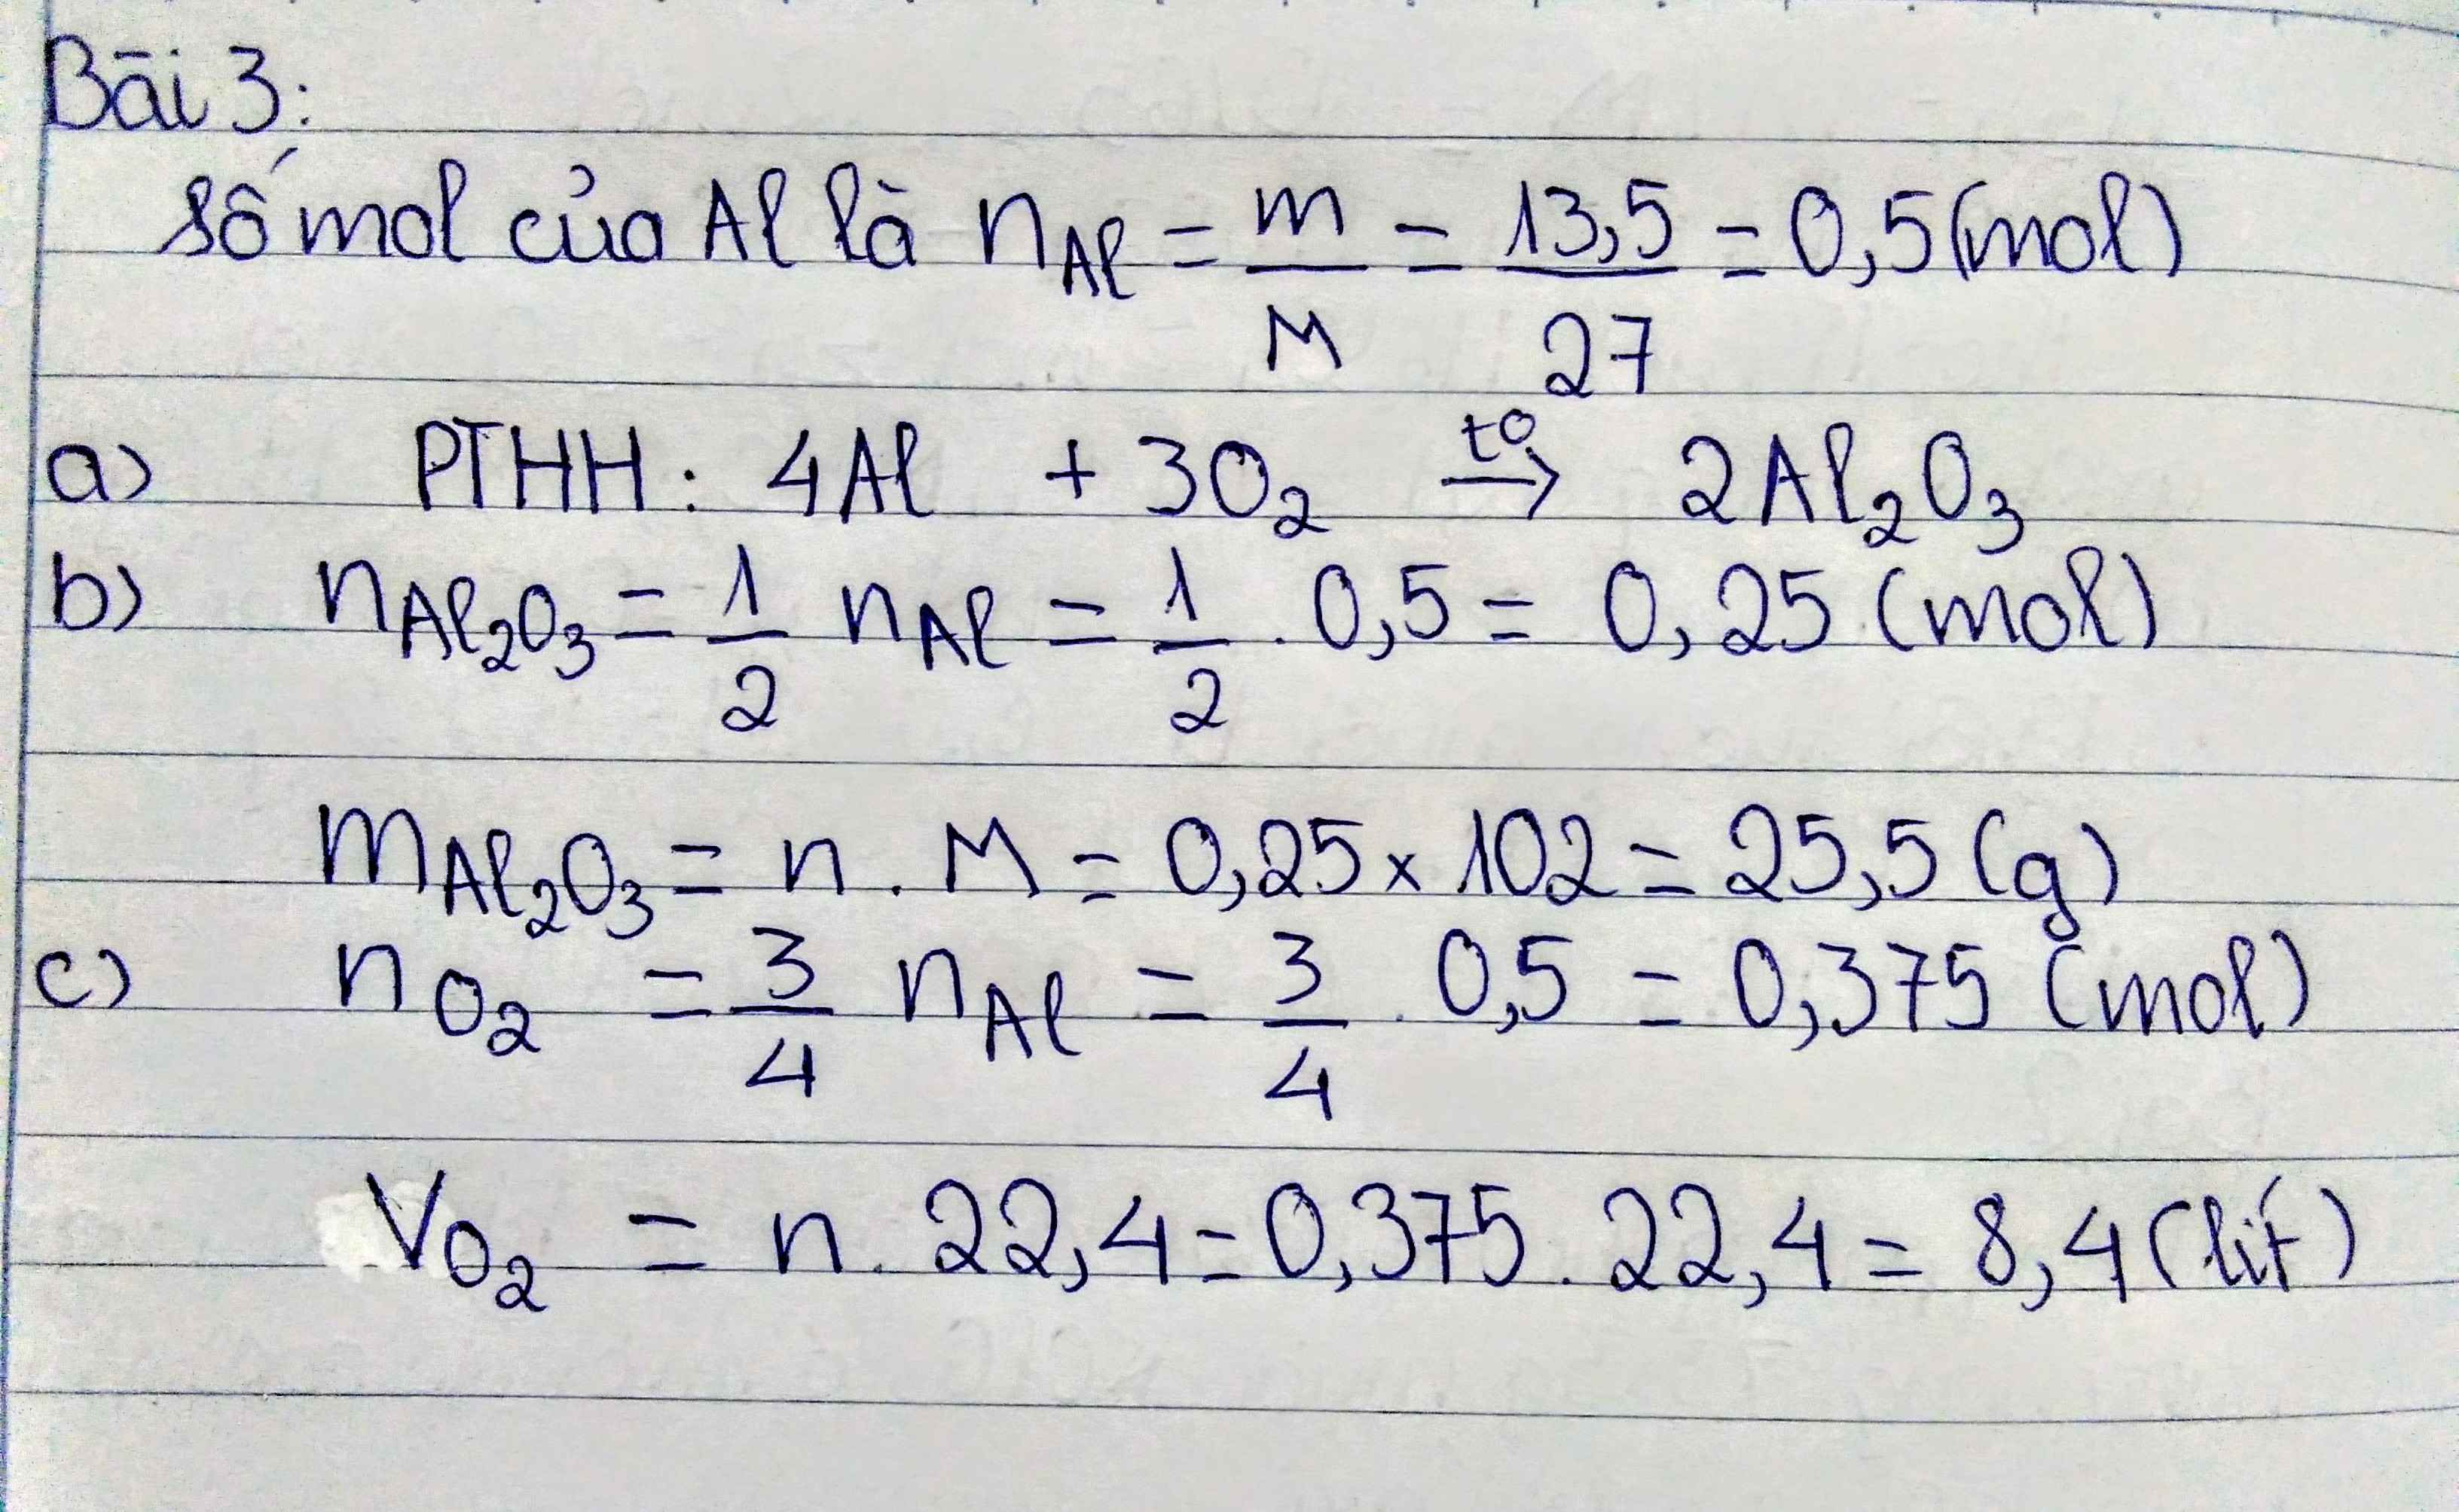 Bài 3:
Số mol của Al là n_Al = m/M = 13,5/27 = 0,5(mol)
a) PTHH: 4Al + 3O₂ →(t°) 2Al₂O₃
b) n_Al₂O₃ = 1/2 n_Al = 1/2 . 0,5 = 0,25 (mol)
m_Al₂O₃ = n . M = 0,25 × 102 = 25,5 (g)
c) n_O₂ = 3/4 n_Al = 3/4 . 0,5 = 0,375 (mol)
V_O₂ = n . 22,4 = 0,375 . 22,4 = 8,4 (lít)